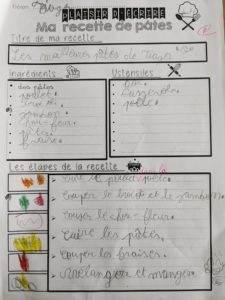 Prénom
PLAISIR D'ÉCRIRE
Ma recette de pâtes
Titre de ma recette
Les meilleures pâtes de
Ingrédients
Ustensiles
des pâtes
poulet
jambon
chou-fleur
pâtes
fraise
bol
casserole
poêle
Les étapes de la recette
Cuire le poulet
Couper le poulet et le jambon
Couper le chou-fleur
Cuire les pâtes
Couper les fraises
Mélanger et manger